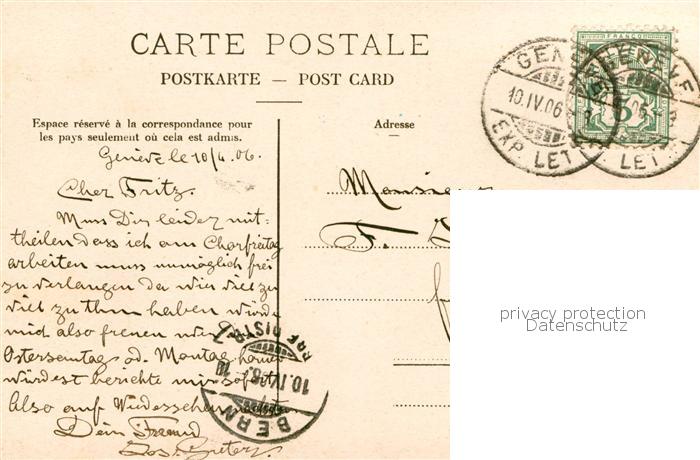 CARTE POSTALE
POSTKARTE — POST CARD
Espace réservé à la correspondance pour
les pays seulement où cela est admis.
Adresse
FRANCO
GENÈVE
10.IV.06
EXP. LET
LET
Genève le 10/4.06.
Cher Fritz.
Muss Dir leider mit=
theilen dass ich am Charfreitag
arbeiten muss unmöglich frei
zu verlangen da wir viel zu
viel zu thun haben würde
mich also freuen wenn
Ostersamtag od. Montag
würdest berichte mir sofort
Also auf Wiedersehen
Dein Freund
Jos.
Monsieur
F.
BERN
10.IV.
BRF DISTR.
privacy protection
Datenschutz